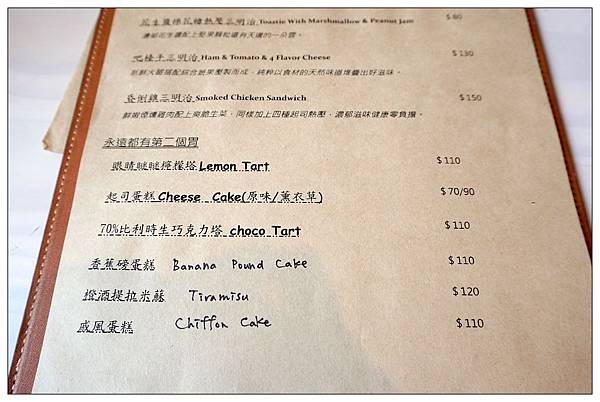 花生蜜棉花糖熱壓三明治 Toastie With Marshmallow & Peanut Jam $ 80
濃郁花生醬配上堅果顆粒還有天邊的一朵雲。
吧檯手三明治 Ham & Tomato & 4 Flavor Cheese $ 130
新鮮火腿搭配綜合蔬果壓製而成，純粹以食材的天然味道堆疊出好滋味。
壹燻雞三明治 Smoked Chicken Sandwich $ 150
鮮嫩煙燻雞肉配上爽脆生菜，同樣加上四種起司熱壓，濃郁滋味健康零負擔。
永遠都有第二個胃
眼睛瞇瞇檸檬塔 Lemon Tart $ 110
起司蛋糕 Cheese Cake(原味/薰衣草) $ 70/90
70%比利時生巧克力塔 choco Tart $ 110
香蕉磅蛋糕 Banana Pound Cake $ 110
橙酒提拉米蘇 Tiramisu $ 120
戚風蛋糕 Chiffon Cake $ 110